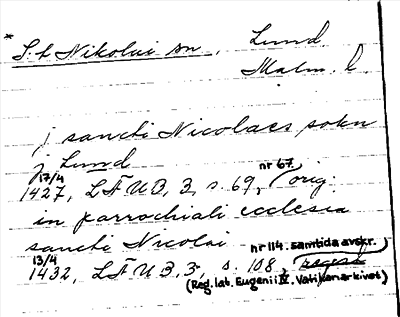 * S:t Nikolai sn, Lund
Malm. l.
j sancti Nicolaes sokn
j Lund
17/4 1427, LÄUB, 3, s. 69, nr 67. orig.
in parrochiali ecclesia
sancti Nicolai
13/4 1432, LÄUB, 3, s. 108, nr 114. samtida avskr.
(Reg. lat. Eugenii IV. Vatikanarkivet)